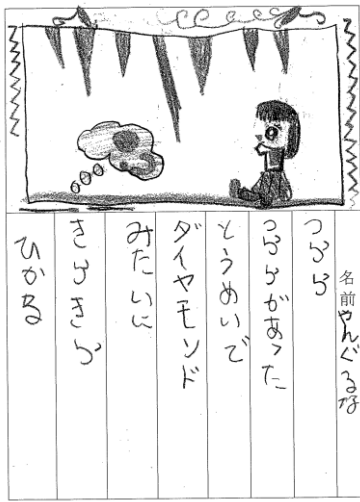 名前 やんぐ るな
つらら
つららがあった
とうめいで
ダイヤモンド
みたいに
きらきら
ひかる